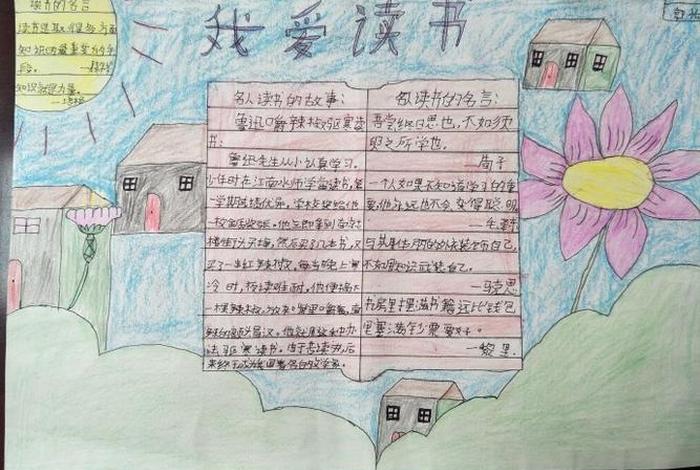 我爱读书
读书的名言
读书是取得多方面
知识的最重要的手
段。
知识就是力量。
—培根
名人读书的故事:
鲁迅嚼辣椒驱寒读
书:
鲁迅先生从小认真学习。
少年时在江南水师学堂读书,第
一学期成绩优异,学校奖给他
一枚金质奖章。他立即拿到南京
楼街头卖掉,然后买了几本书,又
买了一串红辣椒。每当晚上寒
冷时,夜读难耐,他便摘下
一棵辣椒,放在嘴里嚼着,
法驱寒读书。由于苦读书,后
来终于成为我国著名的文学家。
名人读书的名言:
吾尝终日思也,不如须
臾之所学也。
—荀子
一个人如果不知道学习的重
要,他永远也不会变得聪明
与其用华丽的外衣装饰自己,
不如用知识武装自己。
—马克思
书房里摆满书籍还比钱包
里塞满钞票要好。
—黎里